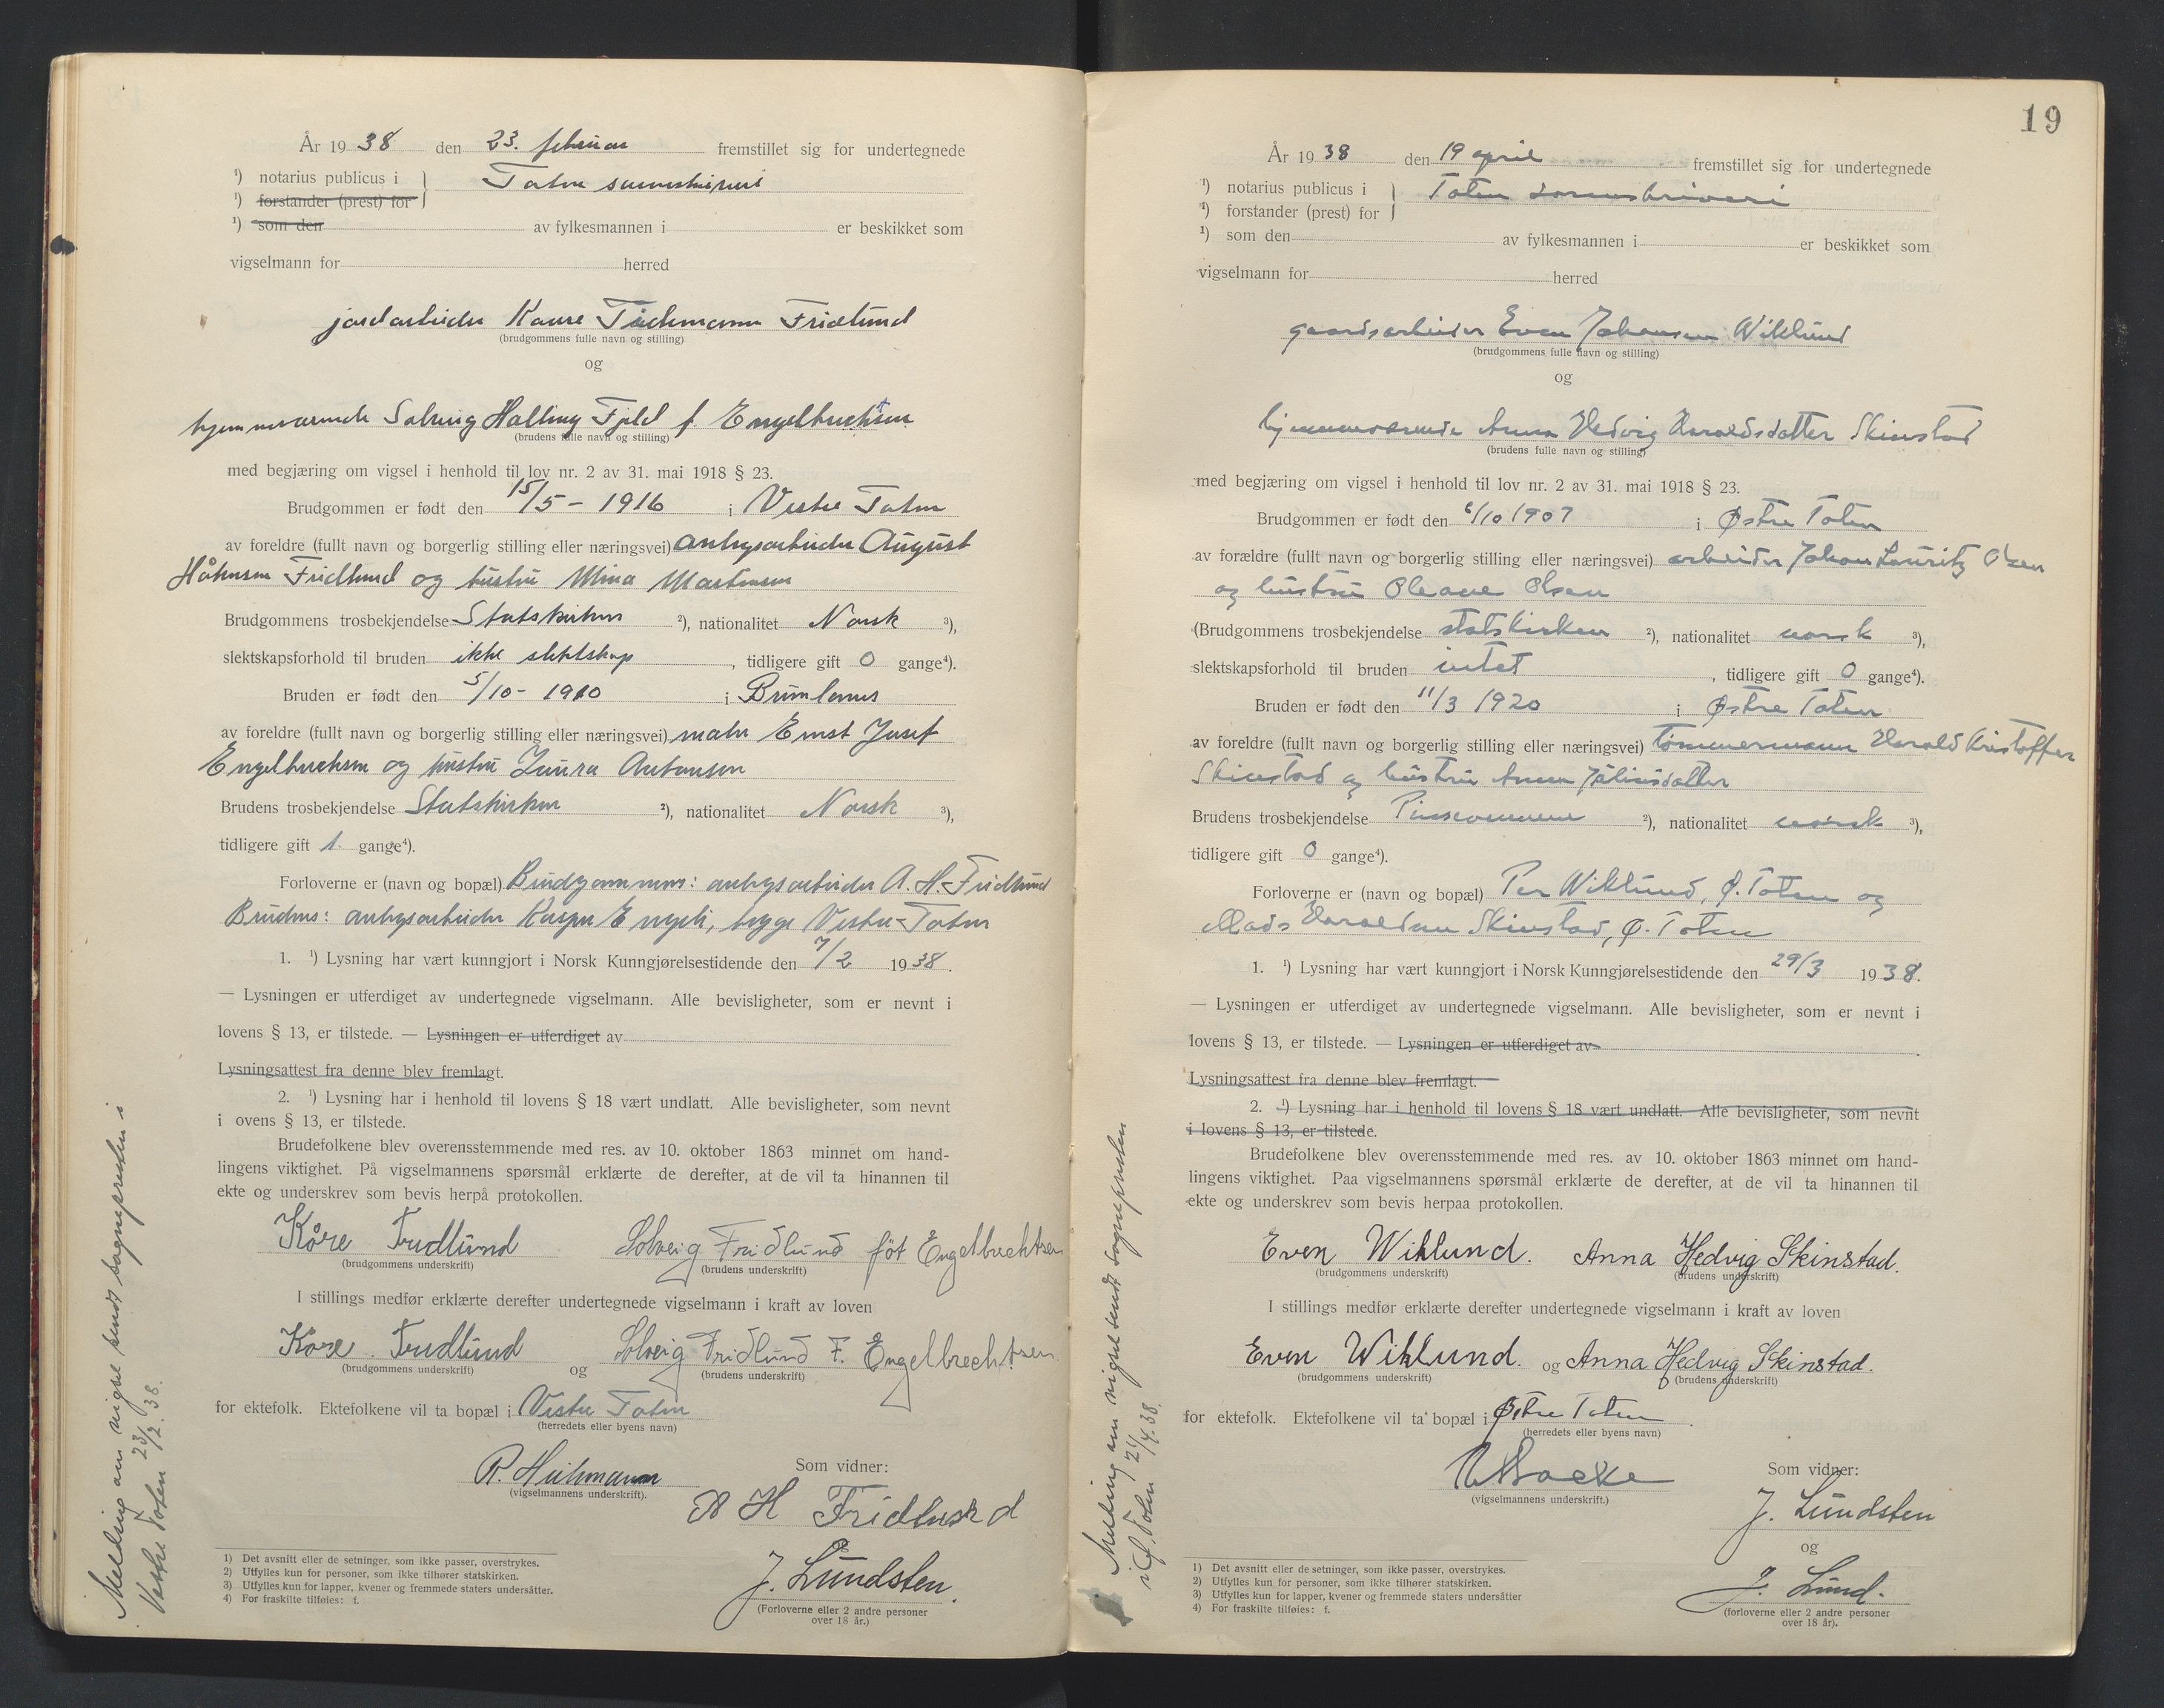 År 1938 den 23. februar fremstillet sig for undertegnede
¹) notarius publicus i Toten sorenskriveri
¹) forstander (prest) for
¹) som den av fylkesmannen i er beskikket som
vigselmann for herred
jordarbeider Kaare Fridlund
(brudgommens fulle navn og stilling)
og
hjemmeværende Solveig Halling Fjeld f. Engelbrechtsen
(brudens fulle navn og stilling)
med begjæring om vigsel i henhold til lov nr. 2 av 31. mai 1918 § 23.
Brudgommen er født den 15/5 - 1916 i Vestre Toten
av foreldre (fullt navn og borgerlig stilling eller næringsvei) anlegsarbeider August
Håkensen Fridlund og hustru Mina Martinsen
Brudgommens trosbekjendelse Statskirken ²), nationalitet Norsk ³),
slektskapsforhold til bruden ikke slektskap, tidligere gift 0 gange⁴).
Bruden er født den 5/10 - 1910 i Brunlanes
av foreldre (fullt navn og borgerlig stilling eller næringsvei) maler Ernst Josef
Engelbrechsen og hustru Laura Antonsen
Brudens trosbekjendelse Statskirken ²), nationalitet Norsk ³),
tidligere gift 1. gange⁴).
Forloverne er (navn og bopæl) Brudgommens: anlegsarbeider A. H. Fridlund
Brudens: anlegsarbeider Kasper Engeli, begge Vestre-Toten
1. ¹) Lysning har vært kunngjort i Norsk Kunngjørelsestidende den 7/2 1938.
— Lysningen er utferdiget av undertegnede vigselmann. Alle bevisligheter, som er nevnt i
lovens § 13, er tilstede. — Lysningen er utferdiget av
Lysningsattest fra denne blev fremlagt.
2. ¹) Lysning har i henhold til lovens § 18 vært undlatt. Alle bevisligheter, som nevnt
i ovens § 13, er tilstede.
Brudefolkene blev overensstemmende med res. av 10. oktober 1863 minnet om hand-
lingens viktighet. På vigselmannens spørsmål erklærte de derefter, at de vil ta hinannen til
ekte og underskrev som bevis herpå protokollen.
Kåre Fridlund Solveig Fridlund föt Engelbrechtsen
(brudgommens underskrift) (brudens underskrift)
I stillings medfør erklærte derefter undertegnede vigselmann i kraft av loven
Kåre Fridlund og Solveig Fridlund F. Engelbrechtsen
(brudgommens underskrift) (brudens underskrift)
for ektefolk. Ektefolkene vil ta bopæl i Vestre Toten
(herredets eller byens navn)
R. Heihmann
(vigselmannens underskrift).
Som vidner:
A H Fridlund
J. Lundsten.
(Forloverne eller 2 andre personer
over 18 år.)
1) Det avsnitt eller de setninger, som ikke passer, overstrykes.
2) Utfylles kun for personer, som ikke tilhører statskirken.
3) Utfylles kun for lapper, kvener og fremmede staters undersåtter.
4) For fraskilte tilføies: f.
Melding om vigsel sendt sognepresten i
Vestre Toten 23/2. 38.
19
År 1938 den 19 april fremstillet sig for undertegnede
¹) notarius publicus i Toten sorenskriveri
¹) forstander (prest) for
¹) som den av fylkesmannen i er beskikket som
vigselmann for herred
gaardsarbeider Even Johansen Wiklund
(brudgommens fulle navn og stilling)
og
hjemmeværende Anna Hedvig Haraldsdatter Skinstad
(brudens fulle navn og stilling)
med begjæring om vigsel i henhold til lov nr. 2 av 31. mai 1918 § 23.
Brudgommen er født den 6/10 1907 i Østre Toten
av forældre (fullt navn og borgerlig stilling eller næringsvei) arbeider Johan Lauritz Olsen
og hustru Oleane Olsen
(Brudgommens trosbekjendelse statskirken ²), nationalitet norsk ³),
slektskapsforhold til bruden intet, tidligere gift 0 gange⁴).
Bruden er født den 11/3 1920 i Østre Toten
av foreldre (fullt navn og borgerlig stilling eller næringsvei) tømmermann Harald Kristoffer
Skinstad og hustru Anna Juliusdatter
Brudens trosbekjendelse Pinsevennene ²), nationalitet norsk ³),
tidligere gift 0 gange⁴).
Forloverne er (navn og bopæl) Per Wiklund, Ø. Toten og
Mads Haraldsen Skinstad, Ø. Toten
1. ¹) Lysning har vært kunngjort i Norsk Kunngjørelsestidende den 29/3 1938.
— Lysningen er utferdiget av undertegnede vigselmann. Alle bevisligheter, som er nevnt i
lovens § 13, er tilstede. — Lysningen er utferdiget av
Lysningsattest fra denne blev fremlagt.
2. ¹) Lysning har i henhold til lovens § 18 vært undlatt. Alle bevisligheter, som nevnt
i lovens § 13, er tilstede.
Brudefolkene blev overensstemmende med res. av 10. oktober 1863 minnet om hand-
lingens viktighet. Paa vigselmannens spørsmål erklærte de derefter, at de vil ta hinannen til
ekte og underskrev som bevis herpaa protokollen.
Even Wiklund. Anna Hedvig Skinstad.
(brudgommens underskrift) (brudens underskrift)
I stillings medfør erklærte derefter undertegnede vigselmann i kraft av loven
Even Wiklund. og Anna Hedvig Skinstad.
(brudgommens underskrift) (brudens underskrift)
for ektefolk. Ektefolkene vil ta bopæl i Østre Toten.
(herredets eller byens navn)
(vigselmannens underskrift.)
Som vidner:
J. Lundsten
og
J. Lund.
(forloverne eller 2 andre personer
over 18 år).
1) Det avsnitt eller de setninger, som ikke passer, overstrykes.
2) Utfylles kun for personer, som ikke tilhører statskirken.
3) Utfylles kun for lapper, kvener og fremmede staters undersåtter
4) For fraskilte tilføies: f.
Melding om vigsel sendt sognepresten
i Ø. Toten 21/4. 38.